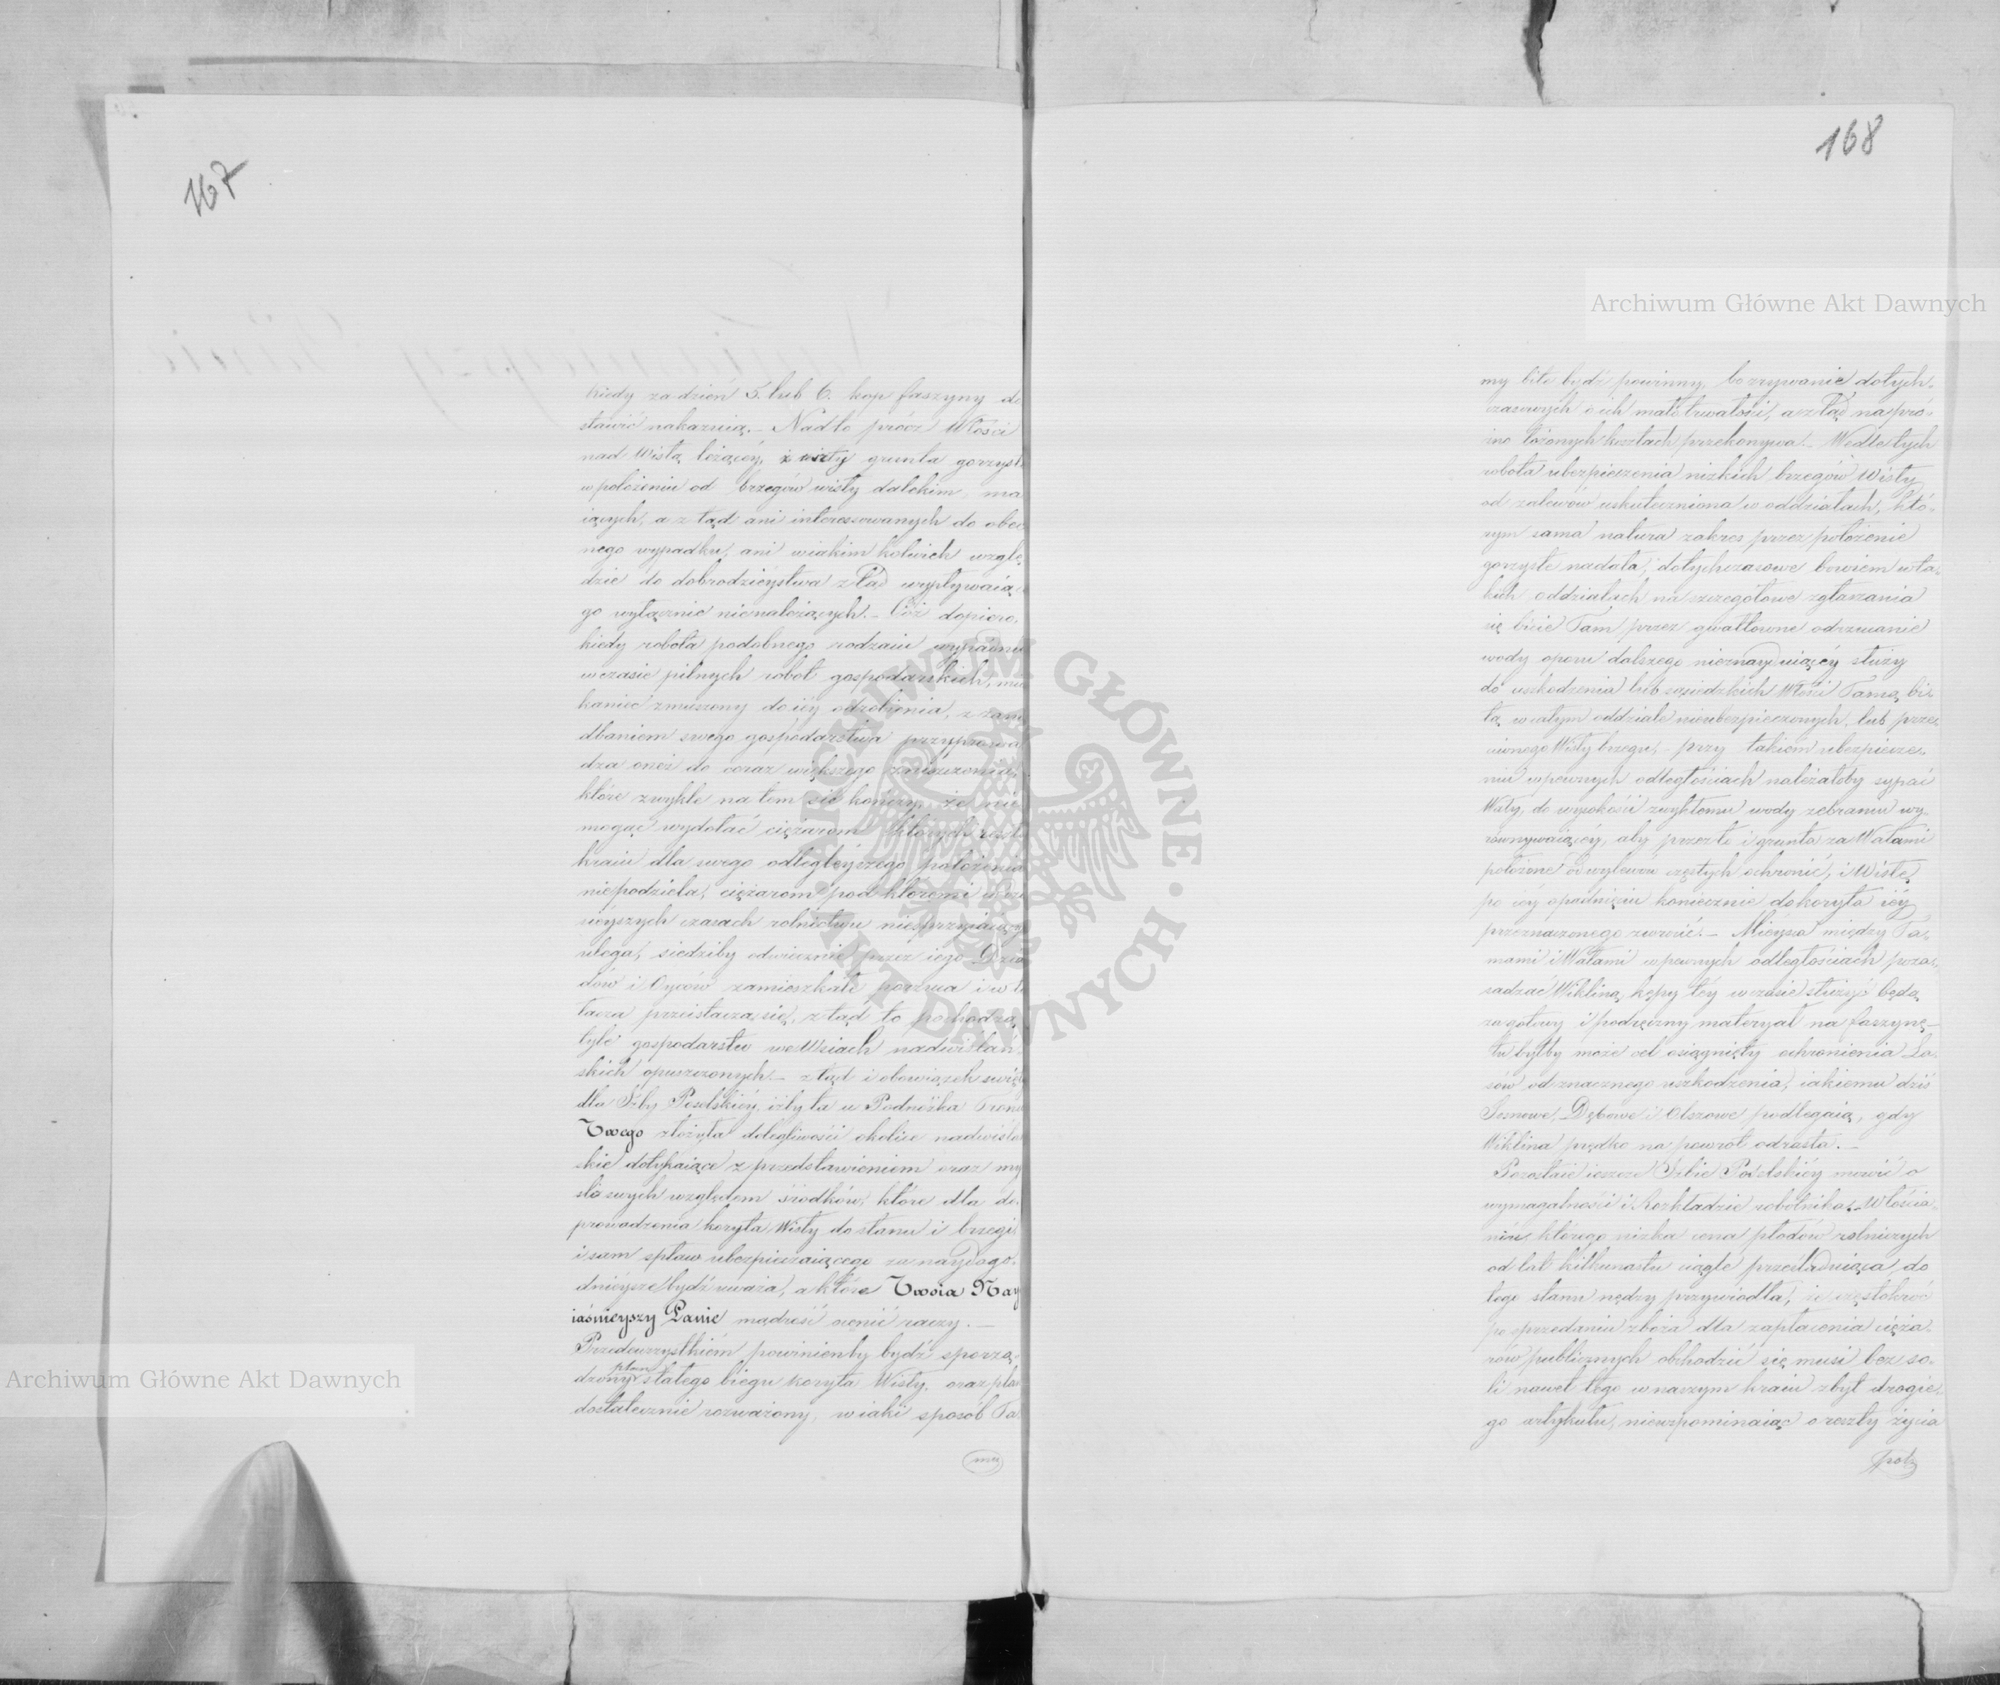 167
kiedy za dzień 5. lub 6. kop faszyny do
stawić nakaznią. – Nadto prócz Włości
nad Wisłą leżącéy, grunta gorzyste
w położeniu od brzegów wisły dalekim, ma
iących, a z tąd ani interessowanych do obec
nego wypadku, ani wiakim kolwiek wzglę
dzie do dobrodzieystwa z tąd wypływaiące
go wyłącznie nienależących. – Cóż dopiero,
kiedy robota podobnego rodzaiu wypadnie
w czasie pilnych robot gospodarskich,
zmuszony do iéy odrobienia, z zanie
dbaniem swego gospodarstwa przyprowa
dza onoż do coraz większego zniszczenia,
które zwykle na tem się kończy, że nie
mogąc wydołać ciężarom których reszta
kraiu dla swego odlegléyszego położenia
niepodziela, ciężarom pod któremi w cza
czasach rolnictwu niesprzyiaiących
ulega, siedziby odwiecznie przez iego Dzia
dów i Oyców zamieszkałe porzuca i w tu
łacza przeistacza się, z tąd to pochodzą
tyle gospodarstw we Wsiach nadwiślań
skich opuszczonych. – z tąd i obowiązek święty
dla Izby Poselskiéy, iżby ta u Podnóżka Tronu
Twego złożyła dolegliwości okolice nadwiślań
skie dotykaiące z przedstawieniem oraz my
śli swych względem środków, które dla do
prowadzenia koryta Wisły do stanu i brzegi
i sam spław ubezpieczaiącego za naydogo
dniéysze bydź uważa, a które Twoia Nay
iaśnieyszy Panie mądrość ocenić raczy. –
Przedewszystkiém powinienby bydź sporzą
dzony plan stałego biegu koryta Wisły, oraz plan
dostatecznie rozważony, w iaki sposób Ta
my
168
my bite bydź powinny, bo zrywanie dotych-
czasowych o ich małéy trwałości, a z tąd na pró-
żno łożonych kosztach przekonywa. – Wedle tych
robota ubezpieczenia nizkich brzegów Wisły
od zalewów uskuteczniona w oddziałach, któ-
rym sama natura zakres przez położenie
gorzyste nadała, dotychczasowe bowiem w ta-
kich oddziałach na szczegółowe zgłaszania
się bicie Tam przez gwałtowne odrzucanie
wody oporu dalszego nieznayduiącéy służy
do uszkodzenia lub sąsiedzkich Włości Tamą bi-
tą w całym oddziale nieubezpieczonych, lub prze
ciwnego Wisły brzegu, – przy takiem ubezpiecze-
niu w pewnych odległościach należałoby sypać
Wały, do wysokości zwykłemu wody zebraniu wy-
równywaiącéy, aby przez to i grunta za Wałami
położone od wylewów częstych ochronić, i Wisłę
po iéy opadnięciu koniecznie do koryta iéy
przeznaczonego zwrócić. – Mieysca między Ta-
mami i Wałami w pewnych odległościach poza-
sadzać Wikliną, kępy téy w czasie służyć będą
za gotowy i podręczny materyał na faszynę –
tu byłby może cel osiągnięty ochronienia La-
sów od znacznego uszkodzenia, iakiemu dziś
Sosnowe, Dębowe i Olszowe podlegaią, gdy
Wiklina prędko na powrót odrasta. –
Pozostaie ieszcze Izbie Poselskiéy mówić o
wymagalności i Rozkładzie robotnika. – Włościa-
nin, którego nizka cena płodów rolniczych
od lat kilkunastu ciągle prześladuiąca, do
tego stanu nędzy przywiodła, że częstokroć
po sprzedaniu zboża dla zapłacenia cięża-
rów publicznych obchodzić się musi bez so-
li nawet tego w naszym kraiu zbyt drogie-
go artykułu, niewspominaiąc o reszty życia
potrz
Archiwum Główne Akt Dawnych
Archiwum Główne Akt Dawnych
ARCHIWUM GŁÓWNE · AKT DAWNYCH ·